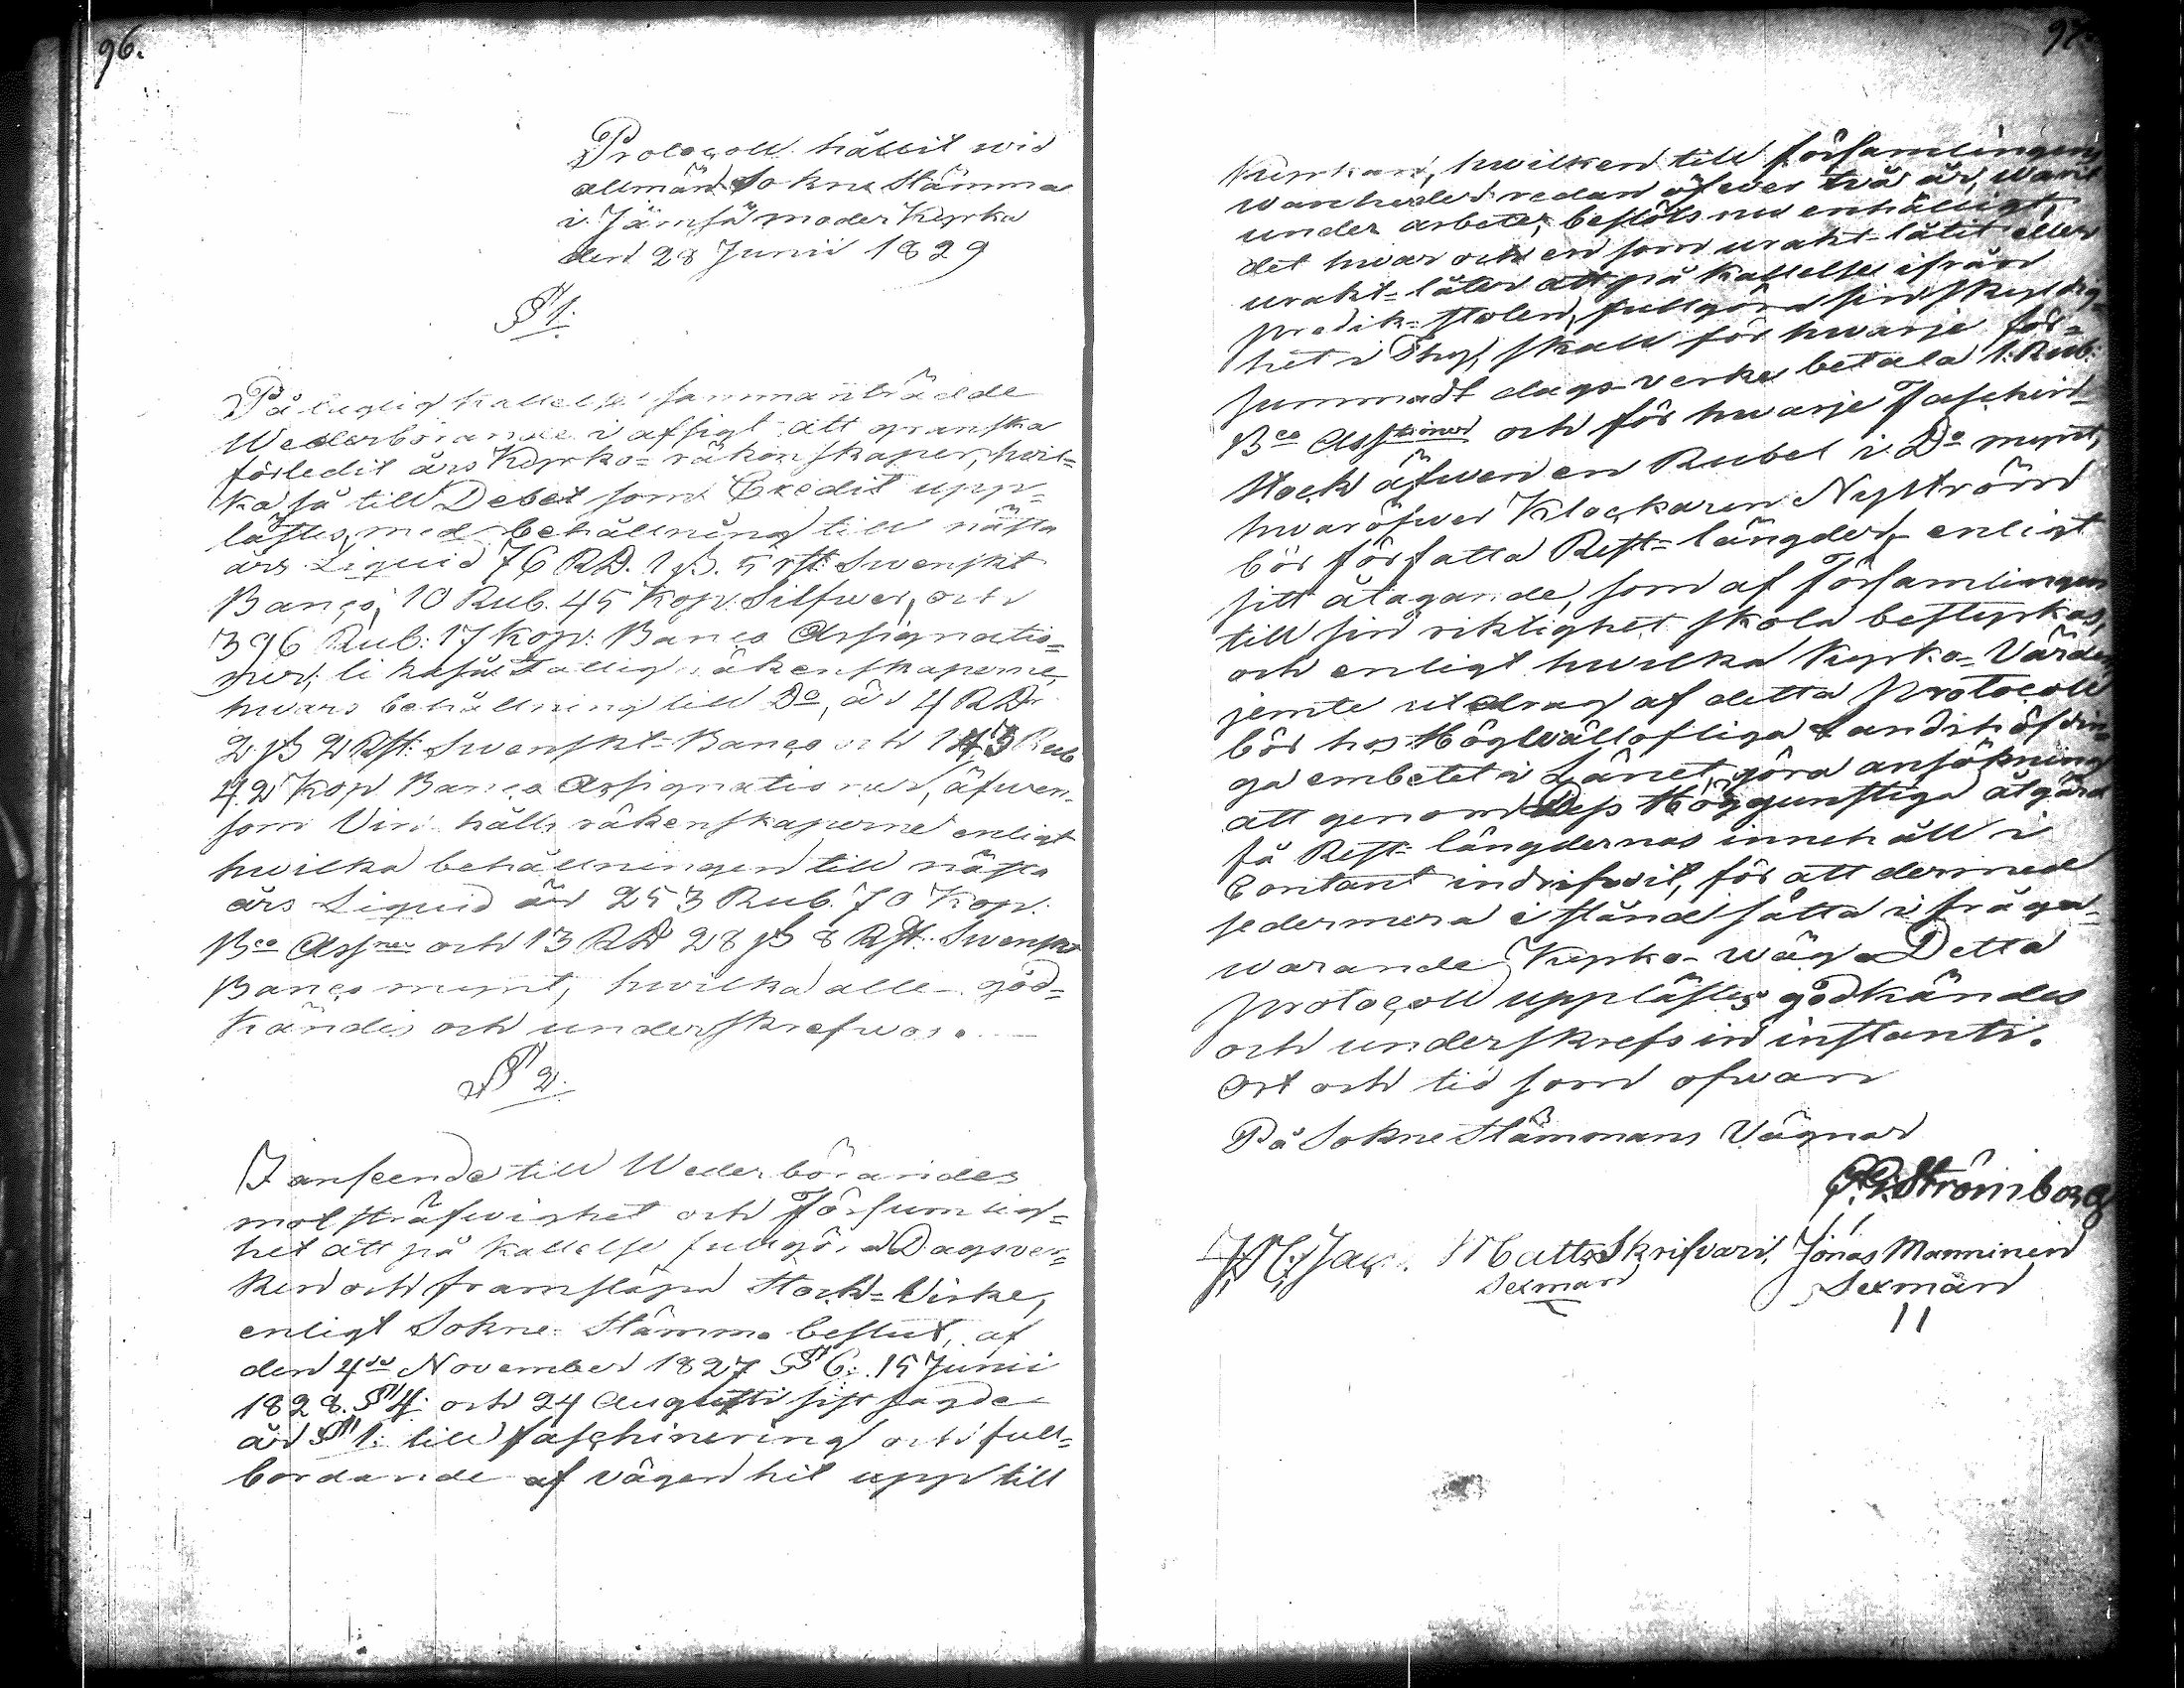 96.
Protocoll hållit wid
allmän Sokne Stämma
i Jämsä moder Kyrka
den 28 Junii 1829
§ 1.
På laglig kallelse sammanträdde
Wederbörande i afsigt att granska
förledit års Kyrko=räkenskaper, hvil=
ka så till Debet som Credit upp=
lästes, med behållning till nästa
års Liquid 76 RD. 1 ß. 5 rst: Swenskt
Banço, 10 Rub. 45 Kop. Silfwer, och
396 Rub: 17 Kop: Banco Assignatio=
ner; likaså Fattig räkenskaperne,
hwars behållning till Do, är 4 RDr
2 ß 2 Rst: Swenskt Banço och 143 Rub
42 Kop Banco Assignationer, äfwen-
som Vin hålls räkenskaperne enligt
hwilka behållningen till nästa
års Liquid är 253 Rub. 70 Kop:
Bco Assner och 13 RD 28 ß 8 Rst: Swenskt
Banço mynt, hwilka alle god=
kändes och underskrefwos.
§ 2.
I anseende till Wederbörandes
motsträfwighet och Försumlig=
het att på kallelse fullgöra Dagsver=
ken och framsläpa Stock=Virke,
enligt Sokne Stämmo beslut, af
den 4de November 1827 § 6: 15 Junii
1828. § 4: och 24 Augusti sist sagde
år § 1: till faschinering och full=
bordande af vägen hit upp till
97.
Kyrkan, hwilken till församlingens
wanheder redan öfwer två år, warit
under arbete, beslöts nu enhälligt,
det hwar och en som urakt-låtit eller
urakt=låter att på kallelse ifrån
predik=stolen, fullgöra sin skyldig=
het i Thy, skall för hwarje för=
summadt dags-verke betala 1: Rub:
Bco Asstioner och för hwarje Faschin
stock äfwen en Rubel i Do mynt,
hwaröfwer Klockaren Nyström
bör författa Rest=längder, enligt
sitt åtagande, som af Församlingen
till sin riktighet skola bestyrkas,
och enligt hwilka Kyrko=Värden
jemte utdrag af detta protocoll
bör hos Högwällofliga Landshöfdin=
ga embetet i Länet, göra ansökning
att genom Dess Höggunstiga åtgärd
få Rest=längdernas innehåll i
Contant indrifwit, för att dermed
sedermera i stånd sätta i fråga=
warande Kyrko-wäg. Detta
protocoll upplästes godkändes
och underskrefs in instanti.
Ort och tid som ofwan
På Sokne Stämmans Vägnar
Strömborg
Matts Skrifvari, Jonas Manninen
Sexman Sexmän